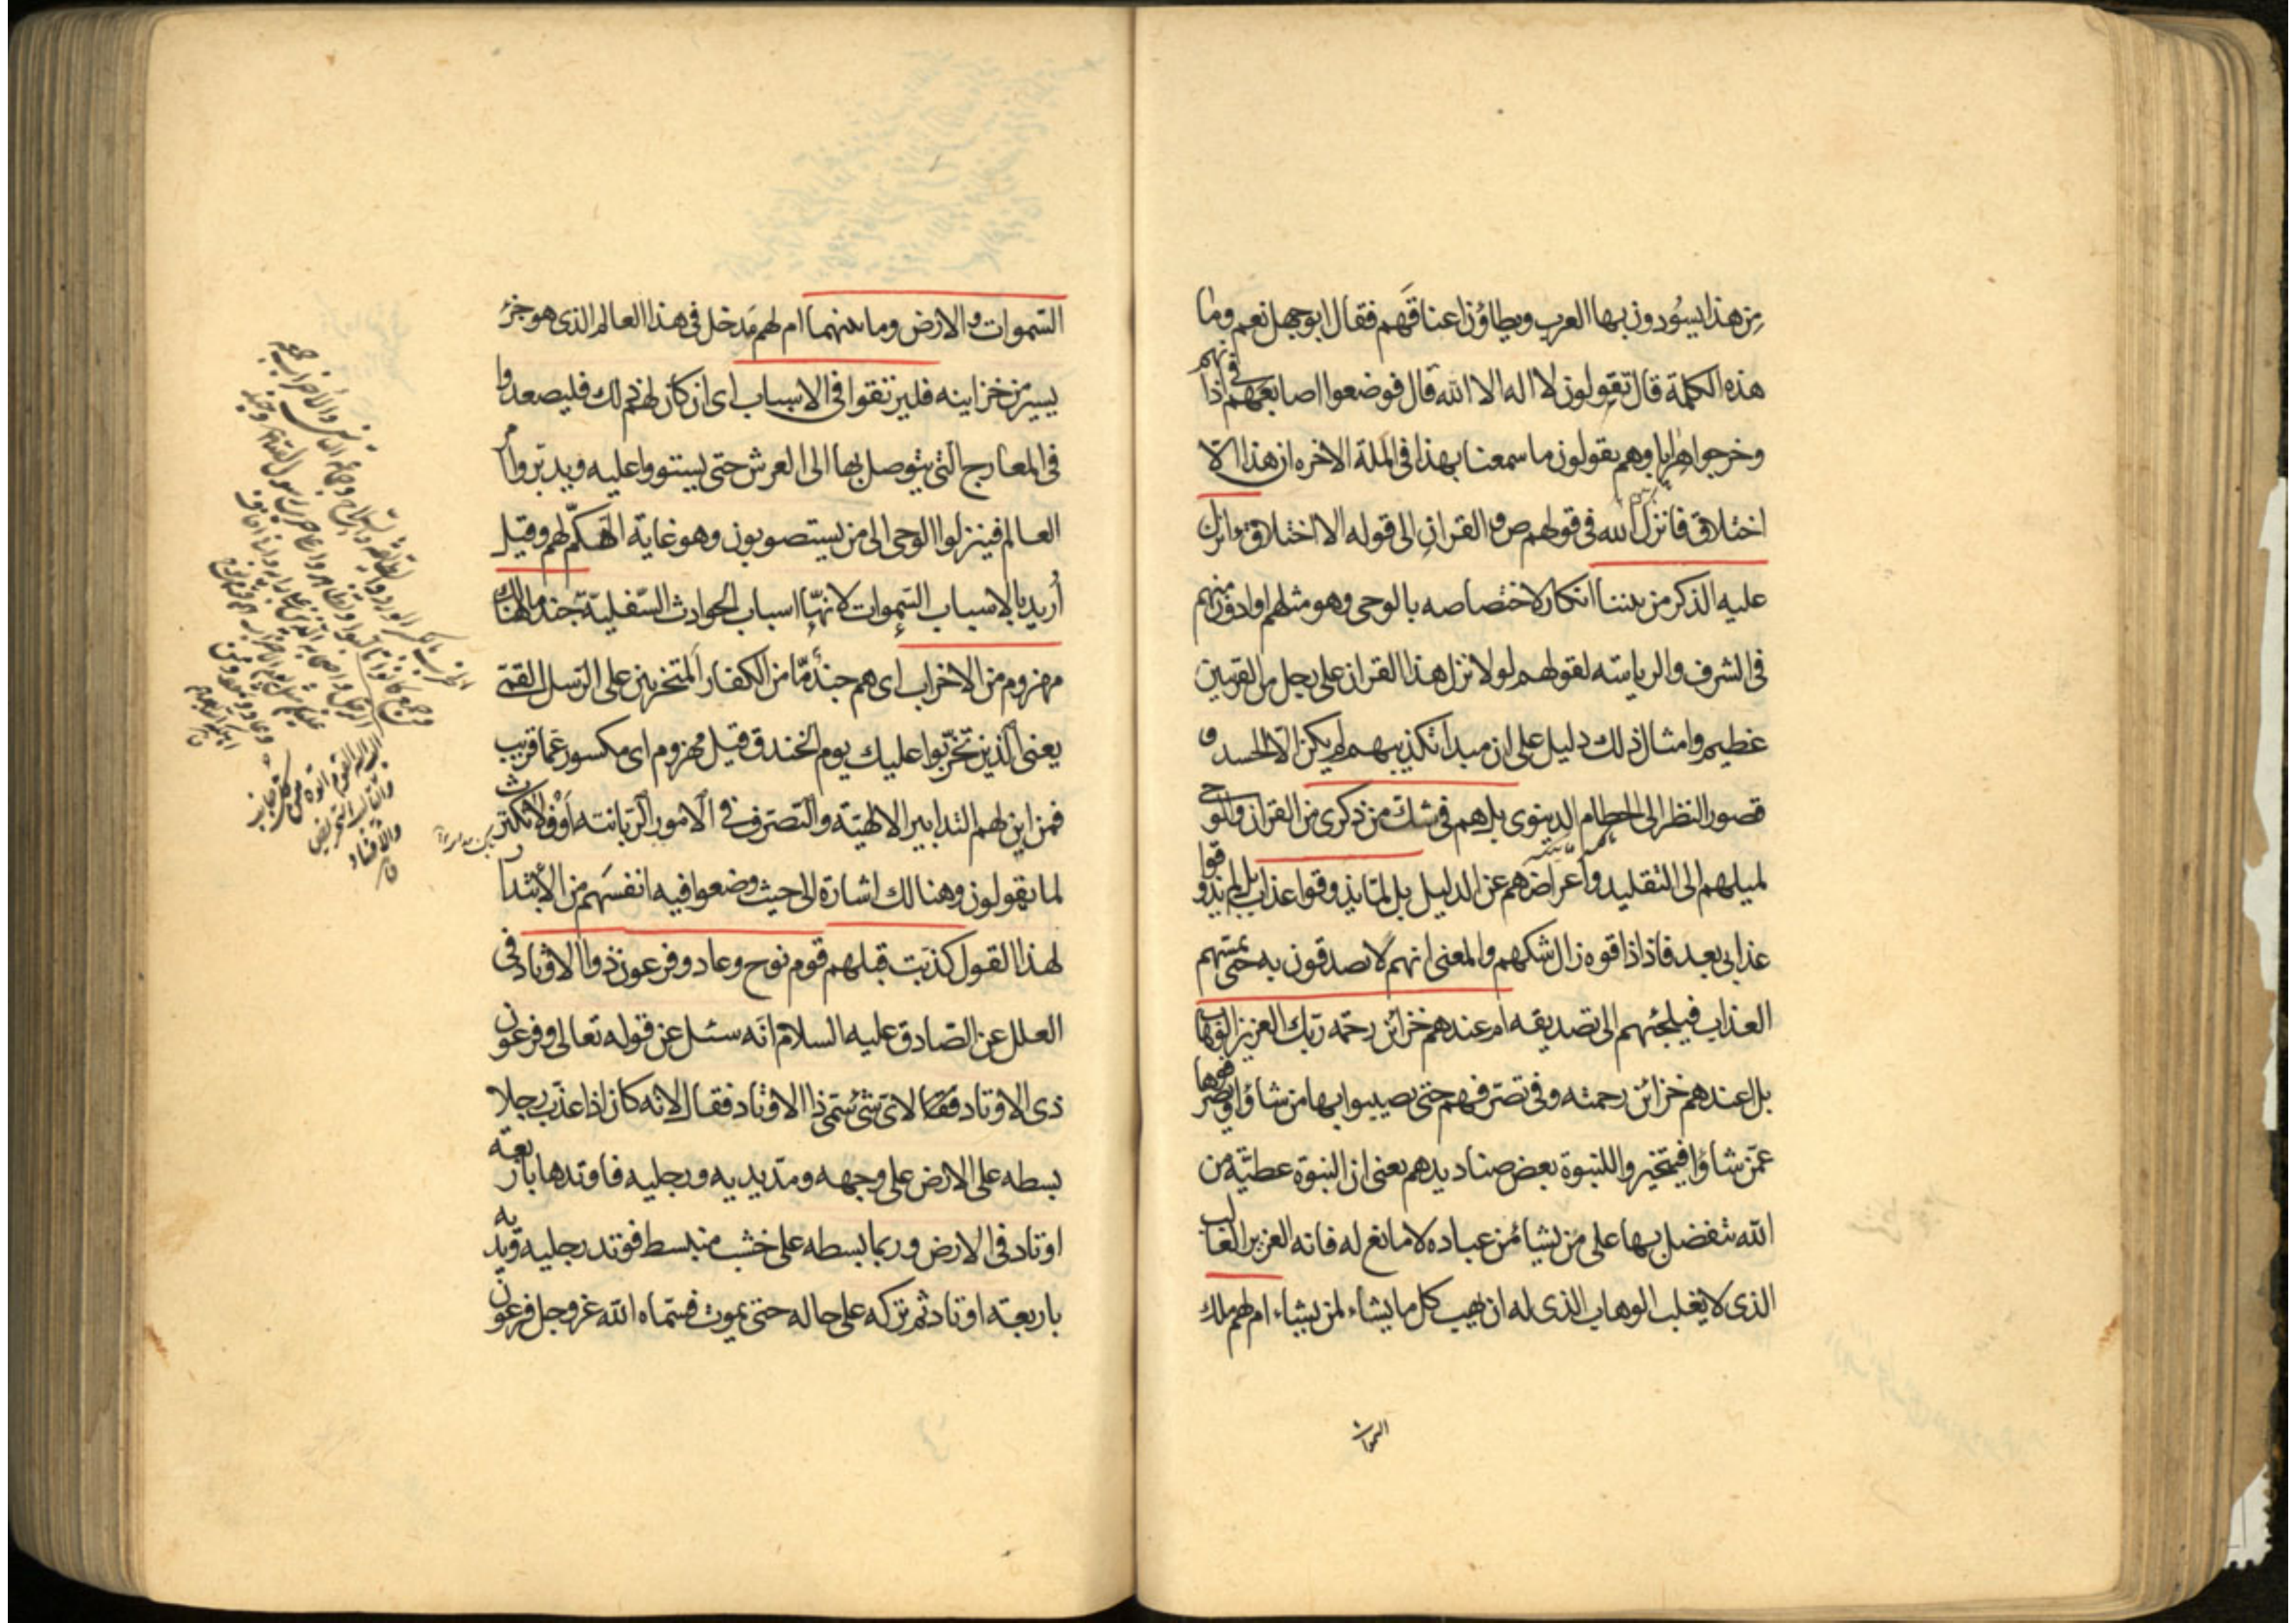 من هذا يسودون بها العرب ويطاؤن اعناقهم فقال ابوجهل نعم وما
هذه الكلمة قال تقولون لا اله الا الله قال فوضعوا اصابعهم في اذانهم
وخرجوا هرابا وهم يقولون ما سمعنا بهذا في الملة الاخره ان هذا الا
اختلاق فانزل الله في قولهم ص والقران الى قوله الا اختلاق ءانزل
عليه الذكر من بيننا انكار لاختصاصه بالوحى وهو مثلهم او ادون منهم
في الشرف والرياسته لقولهم لولا نزل هذا القران على رجل من القريتين
عظيم وامثال ذلك دليل على ان مبدا تكذيبهم لم يكن الا الحسد و
قصور النظر الى الحطام الدنيوى بل هم في شك من ذكرى من القران والوحى
لميلهم الى التقليد واعراضهم عن الدليل بل لما يذوقوا عذاب بل لم يذوقوا
عذابى بعد فاذا ذاقوه زال شكهم والمعنى انهم لا يصدقون به حتى يمسهم
العذاب فيلجئهم الى تصديقه ام عندهم خزائن رحمة ربك العزيز الوهاب
بل اعندهم خزائن رحمته وفي تصرفهم حتى يصيبوا بها من شاؤا ويصرفوها
عمن شاؤا فيتخيروا للنبوة بعض صناديدهم يعنى ان النبوة عطية من
الله يتفضل بها على من يشاء من عباده لا مانع له فانه العزيز الغالب
الذى لا يغلب الوهاب الذى له ان يهب كل ما يشاء لمن يشاء ام لهم ملك
السموات
السموات والارض وما بينهما ام لهم مدخل في هذا العالم الذى هو جزء
يسير من خزاينه فليرتقوا في الاسباب اى ان كان لهم ذلك فليصعدوا
في المعارج التى يتوصل بها الى العرش حتى يستووا عليه ويدبروا امر
العالم فينزلوا الوحى الى من يستصوبون وهو غاية التهكم لهم وقيل
أريد بالاسباب السموات لانها اسباب الحوادث السفلية جند ما هنالك
مهزوم من الاحزاب اى هم جند ما من الكفار المتحزبين على الرسل القمى
يعنى الذين تحزبوا عليك يوم الخندق قيل مهزوم اى مكسور عما قريب
فمن اين لهم التدابير الالهية والتصرف في الامور الربانيته او فلا تكترث
لما يقولون وهنالك اشارة الى حيث وضعوا فيه انفسهم من الأبتدا
لهذا القول كذبت قبلهم قوم نوح وعاد وفرعون ذوا الاوتاد في
العلل عن الصادق عليه السلام انه سئل عن قوله تعالى وفرعون
ذى الاوتاد فقال لاى شئ سمى ذا الاوتاد فقال لانه كان اذا عذب رجلا
بسطه على الارض على وجهه ومد يديه ورجليه فاوتدها باربعة
اوتاد في الارض وربما بسطه على خشب منبسط فوتد رجليه ويديه
باربعة اوتاد ثم تركه على حاله حتى يموت فسماه الله عز وجل فرعون